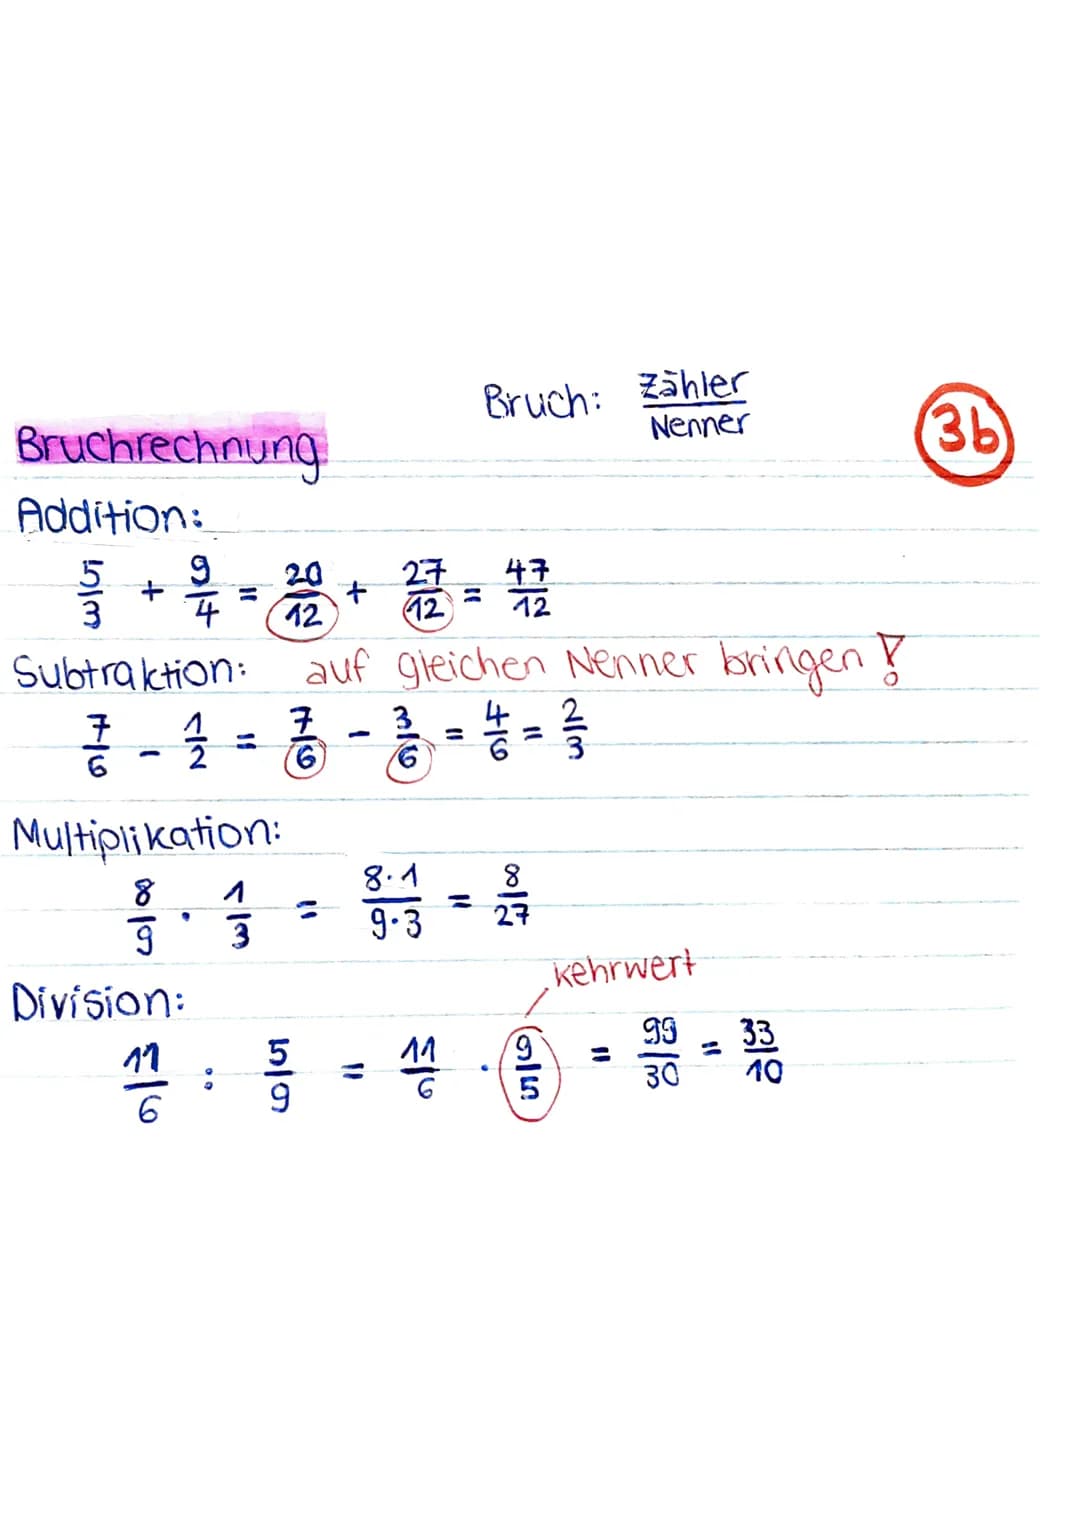 Bruch: Zähler/Nenner
3b
Bruchrechnung
Addition:
5/3 + 9/4 = 20/12 + 27/12 = 47/12
Subtraktion: auf gleichen Nenner bringen!
7/6 - 1/2 = 7/6 - 3/6 = 4/6 = 2/3
Multiplikation:
8/9 · 1/3 = 8·1/9·3 = 8/27
kehrwert
Division:
11/6 : 5/9 = 11/6 · 9/5 = 99/30 = 33/10